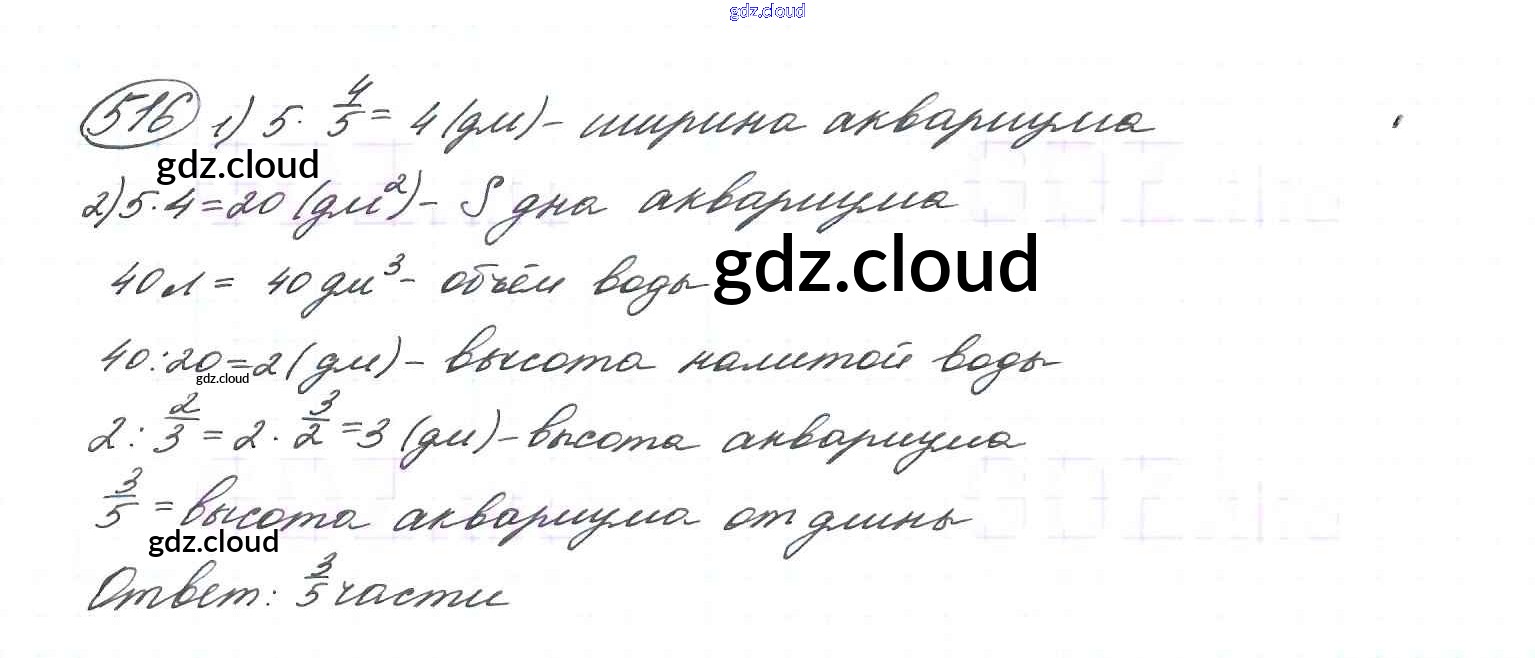 gdz.cloud
516 1) 5 · 4/5 = 4 (дм) - ширина аквариума
gdz.cloud
2) 5 · 4 = 20 (дм²) - S дна аквариума
40 л = 40 дм³ - объём воды
gdz.cloud
40 : 20 = 2 (дм) - высота налитой воды
gdz.cloud
2 : 2/3 = 2 · 3/2 = 3 (дм) - высота аквариума
3/5 = высота аквариума от длины
gdz.cloud
Ответ: 3/5 части